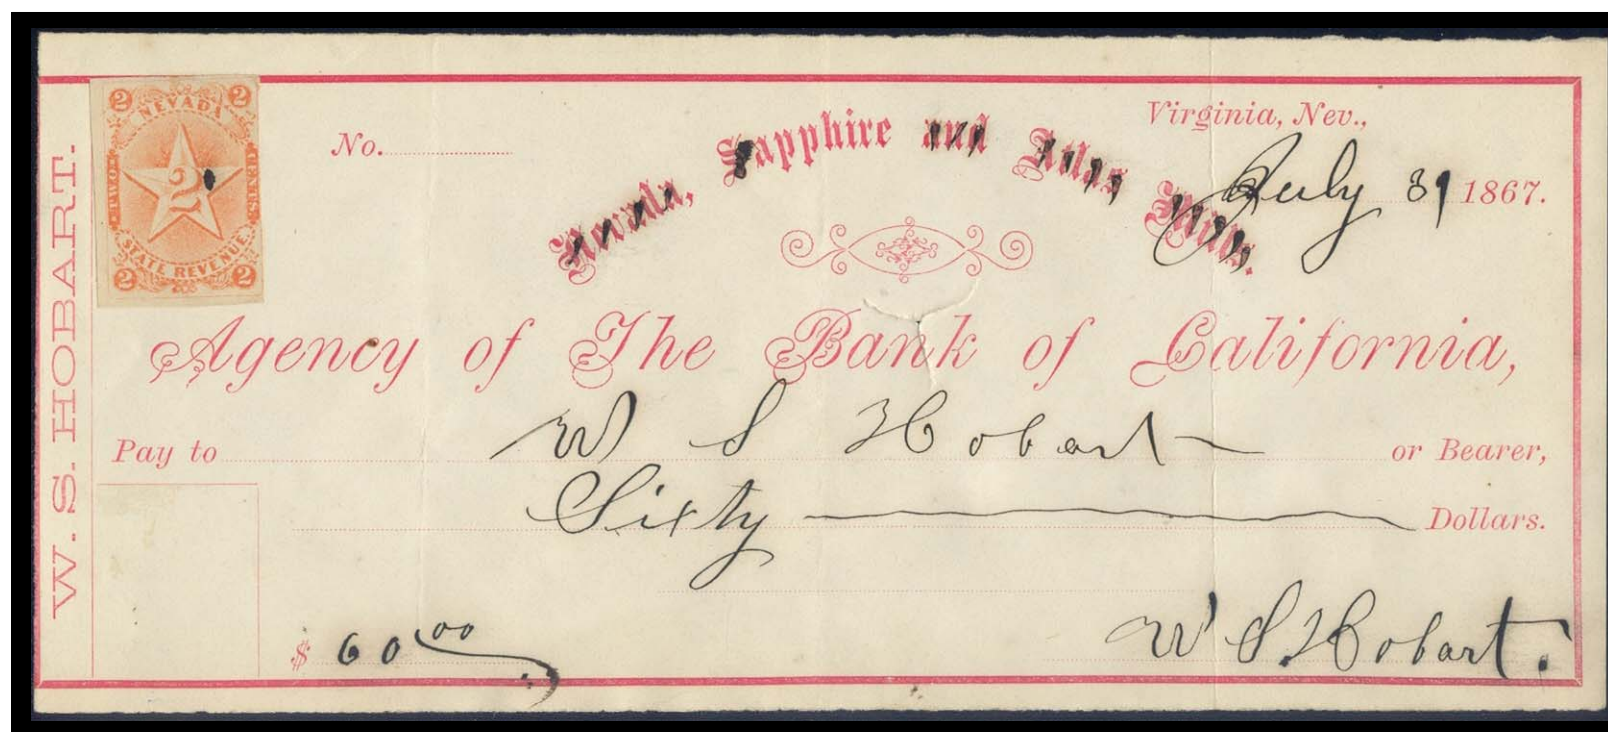 W. S. HOBART.
2 2
NEVADA
TWO
2
CENTS.
STATE REVENUE.
2 2
No.
Nevada, Sapphire and Atlas Mills.
Virginia, Nev.,
July 31 1867.
Agency of The Bank of California,
Pay to W S Hobart or Bearer,
Sixty Dollars.
$ 60 00
W S. Hobart.